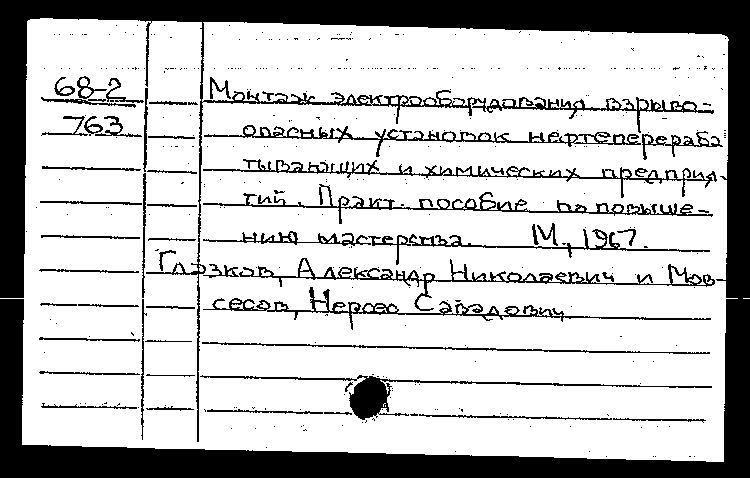 68-2
763
Монтаж электрооборудования взрыво-
опасных установок нефтеперераба
тывающих и химических предприя-
тий. Практ. пособие по повыше-
нию мастерства. М., 1967.
Глазков, Александр Николаевич и Мов-
сесов, Нерсес Савадович